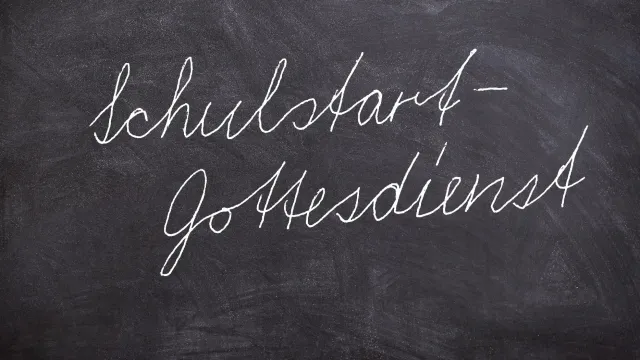 Schulstart-
Gottesdienst